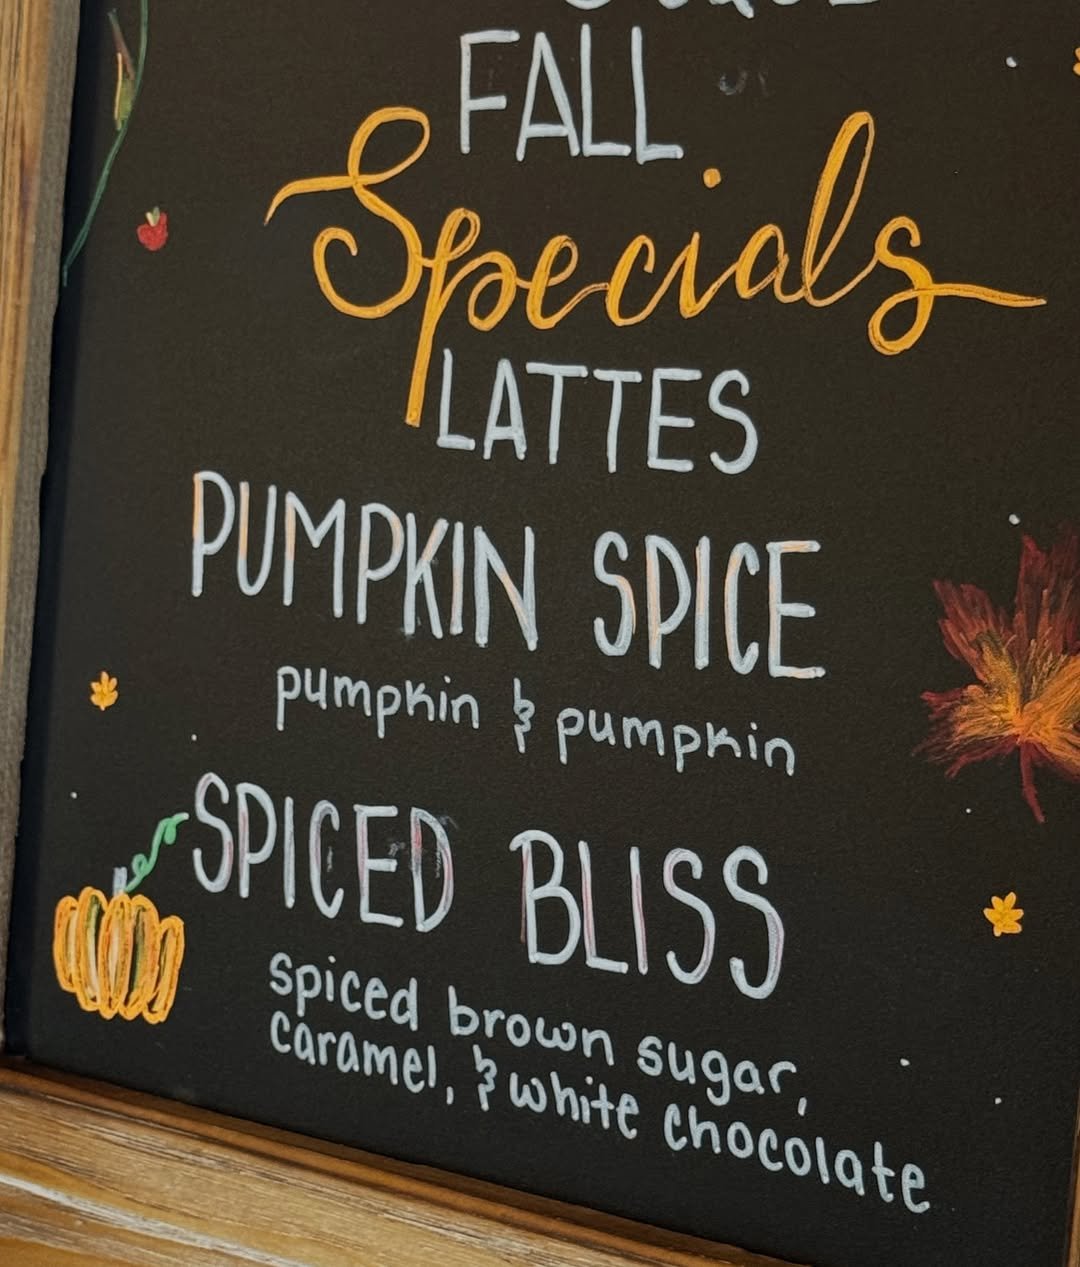 FALL
Specials
LATTES
PUMPKIN SPICE
pumpkin & pumpkin
SPICED BLISS
spiced brown sugar,
caramel, & white chocolate